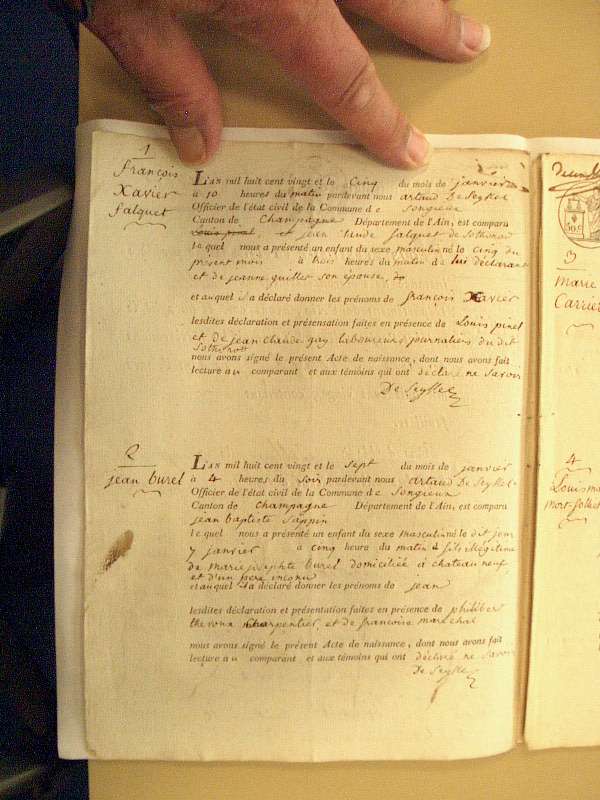 1
françois
Xavier
falquet
L'an mil huit cent vingt et le cinq du mois de janvier
à 10 heures du matin pardevant nous artaud De Seyssel
Officier de l'état civil de la Commune de Songieux
Canton de Champagne Département de l'Ain, est comparu
louis pinel, et jean Claude falquet de Sothonod
lequel nous a présenté un enfant du sexe masculin né le cinq du
présent mois à trois heures du matin de lui déclarant
et de jeanne guillet son épouse,
et auquel il a déclaré donner les prénoms de françois Xavier
lesdites déclaration et présentation faites en présence de Louis pinel
et de jean claude gay laboureurs journaliers du dit
Sothonod
nous avons signé le présent Acte de naissance, dont nous avons fait
lecture au comparant et aux témoins qui ont déclaré ne Savoir
De Seyssel
2
jean burel
L'an mil huit cent vingt et le sept du mois de janvier
à 4 heures du Soir pardevant nous artaud De Seyssel
Officier de l'état civil de la Commune de Songieux
Canton de Champagne Département de l'Ain, est comparu
jean baptiste Sappin
lequel nous a présenté un enfant du sexe masculin né le dit jour
7 janvier à cinq heure du matin fils illégitime
de marie josephte burel domiciliée à chateauneuf
et d'un père inconnu
et auquel il a déclaré donner les prénoms de jean
lesdites déclaration et présentation faites en présence de philibert
charpentier, et de francoise maréchal
nous avons signé le présent Acte de naissance, dont nous avons fait
lecture au comparant et aux témoins qui ont déclaré ne Savoir
De Seyssel
3
Marie
4